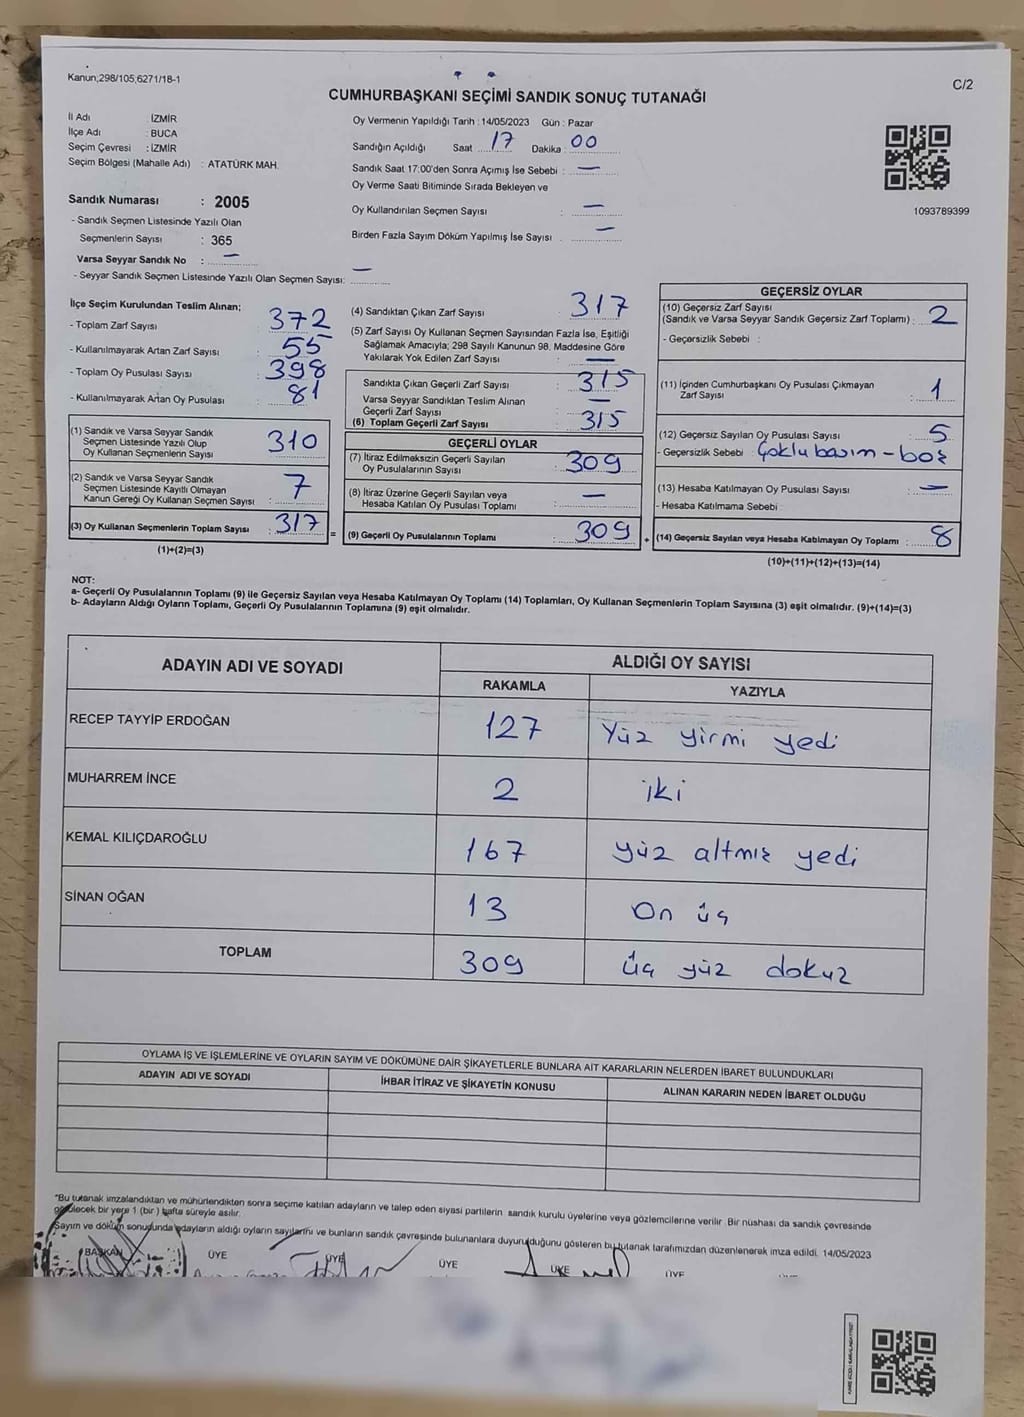 Kanun;298/105,6271/18-1
C/2
CUMHURBAŞKANI SEÇİMİ SANDIK SONUÇ TUTANAĞI
İl Adı : İZMİR
İlçe Adı : BUCA
Seçim Çevresi : İZMİR
Seçim Bölgesi (Mahalle Adı) : ATATÜRK MAH.
Sandık Numarası : 2005
- Sandık Seçmen Listesinde Yazılı Olan
Seçmenlerin Sayısı : 365
Varsa Seyyar Sandık No : —
- Seyyar Sandık Seçmen Listesinde Yazılı Olan Seçmen Sayısı: —
Oy Vermenin Yapıldığı Tarih : 14/05/2023 Gün : Pazar
Sandığın Açıldığı Saat 17 Dakika : 00
Sandık Saat 17:00'den Sonra Açımış İse Sebebi : —
Oy Verme Saati Bitiminde Sırada Bekleyen ve
Oy Kullandırılan Seçmen Sayısı : —
Birden Fazla Sayım Döküm Yapılmış İse Sayısı : —
1093789399
İlçe Seçim Kurulundan Teslim Alınan;
- Toplam Zarf Sayısı : 372
- Kullanılmayarak Artan Zarf Sayısı : 55
- Toplam Oy Pusulası Sayısı : 398
- Kullanılmayarak Artan Oy Pusulası : 81
(1) Sandık ve Varsa Seyyar Sandık
Seçmen Listesinde Yazılı Olup
Oy Kullanan Seçmenlerin Sayısı : 310
(2) Sandık ve Varsa Seyyar Sandık
Seçmen Listesinde Kayıtlı Olmayan
Kanun Gereği Oy Kullanan Seçmen Sayısı : 7
(3) Oy Kullanan Seçmenlerin Toplam Sayısı : 317
(1)+(2)=(3)
(4) Sandıktan Çıkan Zarf Sayısı : 317
(5) Zarf Sayısı Oy Kullanan Seçmen Sayısından Fazla İse, Eşitliği
Sağlamak Amacıyla; 298 Sayılı Kanunun 98. Maddesine Göre
Yakılarak Yok Edilen Zarf Sayısı : —
Sandıkta Çıkan Geçerli Zarf Sayısı : 315
Varsa Seyyar Sandıktan Teslim Alınan
Geçerli Zarf Sayısı : —
(6) Toplam Geçerli Zarf Sayısı : 315
GEÇERLİ OYLAR
(7) İtiraz Edilmeksizin Geçerli Sayılan
Oy Pusulalarının Sayısı : 309
(8) İtiraz Üzerine Geçerli Sayılan veya
Hesaba Katılan Oy Pusulası Toplamı : —
= (9) Geçerli Oy Pusulalarının Toplamı : 309
GEÇERSİZ OYLAR
(10) Geçersiz Zarf Sayısı
(Sandık ve Varsa Seyyar Sandık Geçersiz Zarf Toplamı) : 2
- Geçersizlik Sebebi :
(11) İçinden Cumhurbaşkanı Oy Pusulası Çıkmayan
Zarf Sayısı : 1
(12) Geçersiz Sayılan Oy Pusulası Sayısı : 5
- Geçersizlik Sebebi : Çoklu basım - boş
(13) Hesaba Katılmayan Oy Pusulası Sayısı : —
- Hesaba Katılmama Sebebi :
+ (14) Geçersiz Sayılan veya Hesaba Katılmayan Oy Toplamı : 8
(10)+(11)+(12)+(13)=(14)
NOT:
a- Geçerli Oy Pusulalarının Toplamı (9) ile Geçersiz Sayılan veya Hesaba Katılmayan Oy Toplamı (14) Toplamları, Oy Kullanan Seçmenlerin Toplam Sayısına (3) eşit olmalıdır. (9)+(14)=(3)
b- Adayların Aldığı Oyların Toplamı, Geçerli Oy Pusulalarının Toplamına (9) eşit olmalıdır.
ADAYIN ADI VE SOYADI ALDIĞI OY SAYISI
RAKAMLA YAZIYLA
RECEP TAYYİP ERDOĞAN 127 Yüz yirmi yedi
MUHARREM İNCE 2 iki
KEMAL KILIÇDAROĞLU 167 yüz altmış yedi
SİNAN OĞAN 13 On üç
TOPLAM 309 üç yüz dokuz
OYLAMA İŞ VE İŞLEMLERİNE VE OYLARIN SAYIM VE DÖKÜMÜNE DAİR ŞİKAYETLERLE BUNLARA AİT KARARLARIN NELERDEN İBARET BULUNDUKLARI
ADAYIN ADI VE SOYADI İHBAR İTİRAZ VE ŞİKAYETİN KONUSU ALINAN KARARIN NEDEN İBARET OLDUĞU
*Bu tutanak imzalandıktan ve mühürlendikten sonra seçime katılan adayların ve talep eden siyasi partilerin sandık kurulu üyelerine veya gözlemcilerine verilir. Bir nüshası da sandık çevresinde
görülecek bir yere 1 (bir) hafta süreyle asılır.
Sayım ve döküm sonucunda adayların aldığı oyların sayılarını ve bunların sandık çevresinde bulunanlara duyurulduğunu gösteren bu tutanak tarafımızdan düzenlenerek imza edildi. 14/05/2023
BAŞKAN ÜYE ÜYE ÜYE ÜYE ÜYE